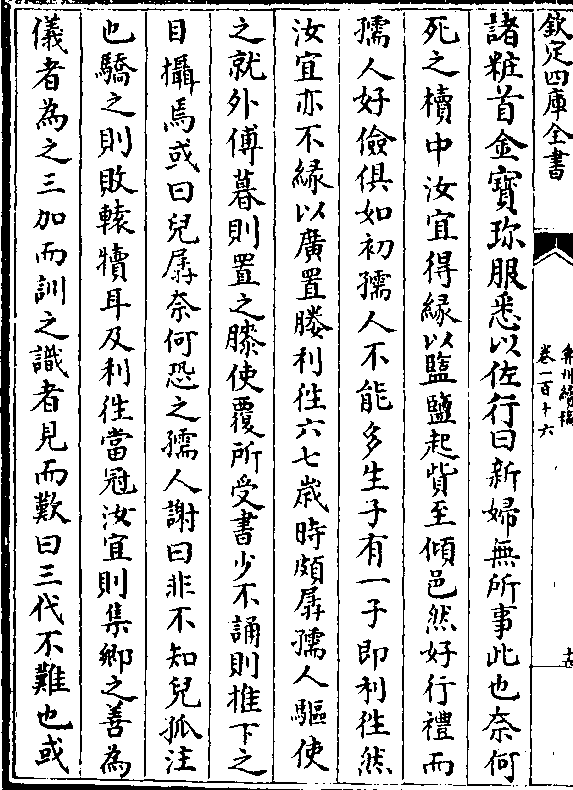 欽定四庫全書
弇州續稿
卷一百十六
諸粧首金寶珎服悉以佐行曰新婦無所事此也奈何
死之櫝中汝宜得縁以鹽鹽起貲至傾邑然好行禮而
孺人好儉俱如初孺人不能多生子有一子即利徃然
汝宜亦不縁以廣置媵利徃六七嵗時頗孱孺人驅使
之就外傅暮則置之膝使覆所受書少不誦則推下之
目攝焉或曰兒孱奈何恐之孺人謝曰非不知兒孤注
也驕之則敗轅犢耳及利徃當冠汝宜則集鄉之善為
儀者為之三加而訓之識者見而歎曰三代不難也或